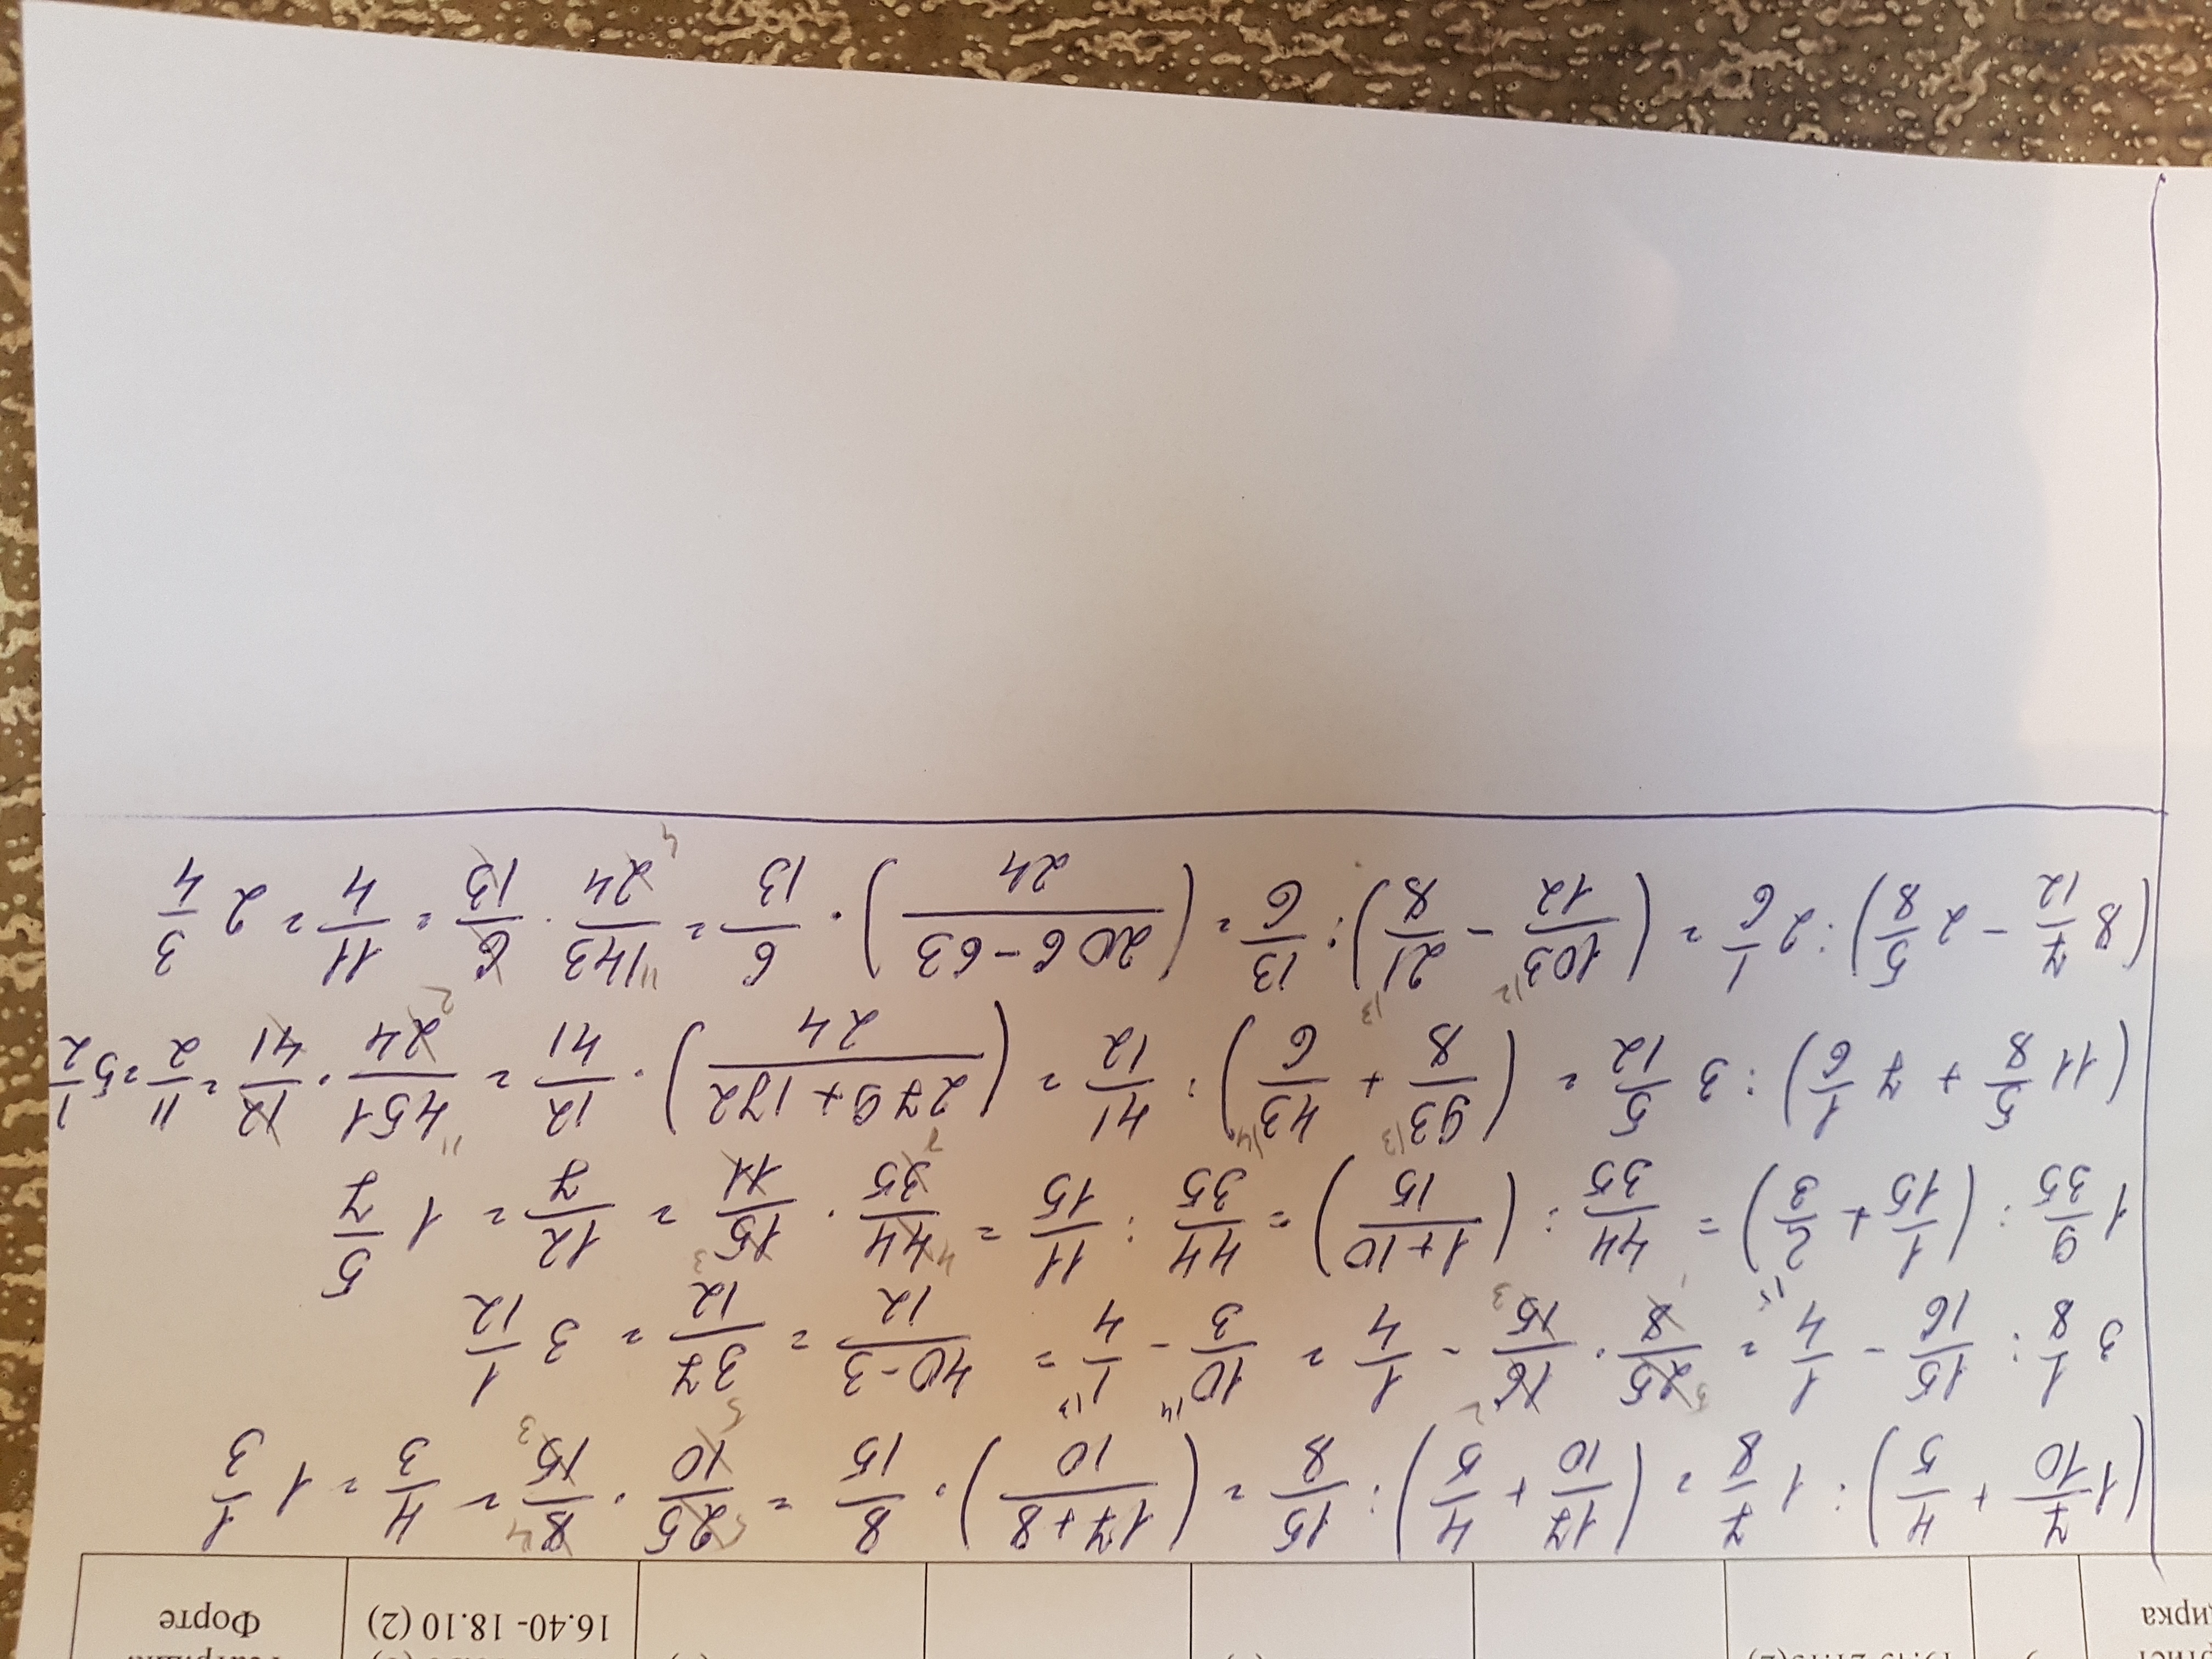 16.40- 18.10 (2) Форте
(1 7/10 + 4/5) : 1 7/8 = (17/10 + 4/5) : 15/8 = (17+8/10) · 8/15 = 25/10 · 8/15 = 4/3 = 1 1/3
3 1/8 : 15/16 - 1/4 = 25/8 · 16/15 - 1/4 = 10/3 - 1/4 = 40-3/12 = 37/12 = 3 1/12
1 9/35 : (1/15 + 2/3) = 44/35 : (1+10/15) = 44/35 : 11/15 = 44/35 · 15/11 = 12/7 = 1 5/7
(11 5/8 + 7 1/6) : 3 5/12 = (93/8 + 43/6) : 41/12 = (279+172/24) · 12/41 = 451/24 · 12/41 = 11/2 = 5 1/2
(8 7/12 - 2 5/8) : 2 1/6 = (103/12 - 21/8) : 13/6 = (206-63/24) · 6/13 = 143/24 · 6/13 = 11/4 = 2 3/4